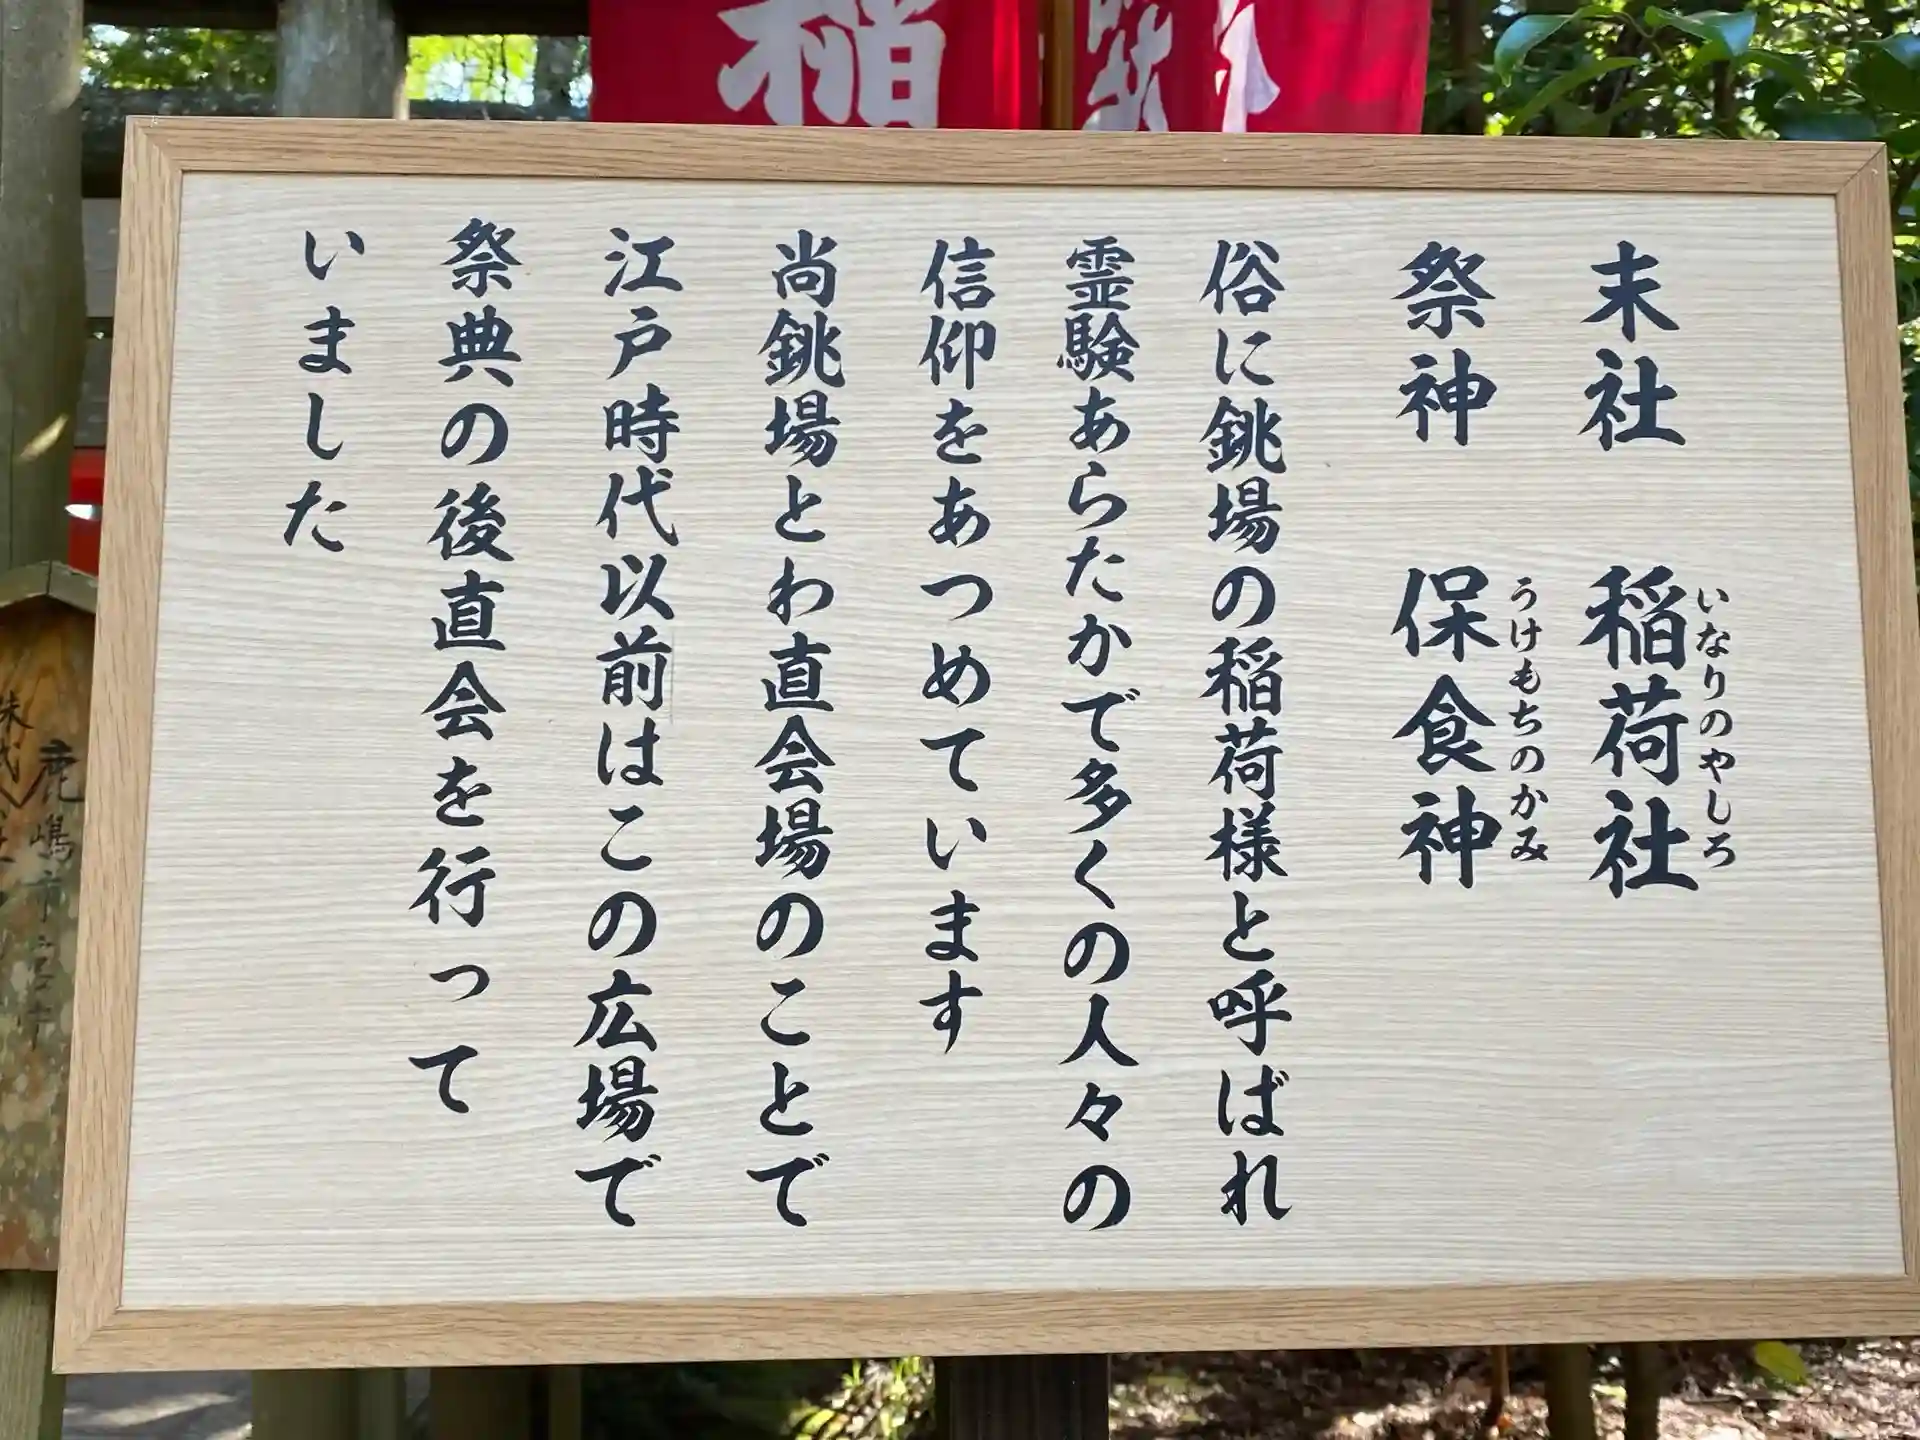 末社　稲荷社
いなりのやしろ
祭神　保食神
うけもちのかみ
俗に銚場の稲荷様と呼ばれ
霊験あらたかで多くの人々の
信仰をあつめています
尚銚場とわ直会場のことで
江戸時代以前はこの広場で
祭典の後直会を行って
いました
稲
鹿嶋市宮中